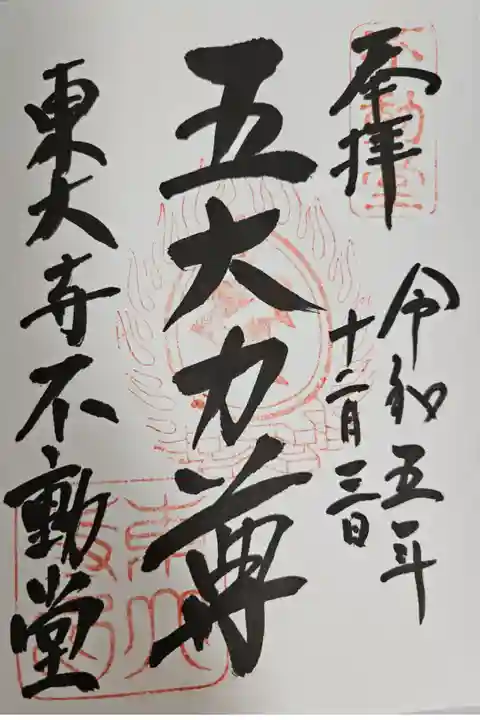 奉拝
不動堂
令和五年
十二月三日
五大力尊
東大寺不動堂